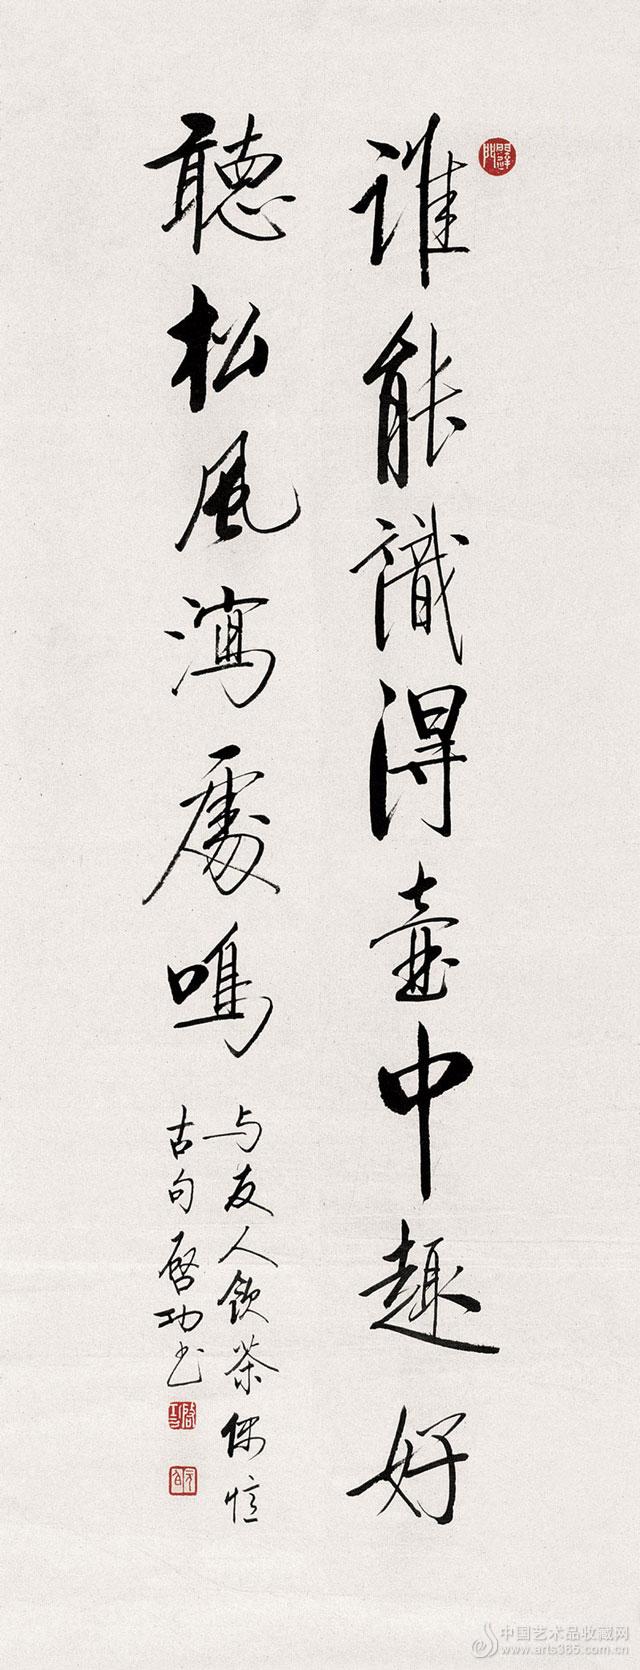 誰能識得壺中趣好
聽松風瀉處鳴
与友人飲茶偶憶
古句啓功书
启功
元白
中国艺术品收藏网
www.arts365.com.cn